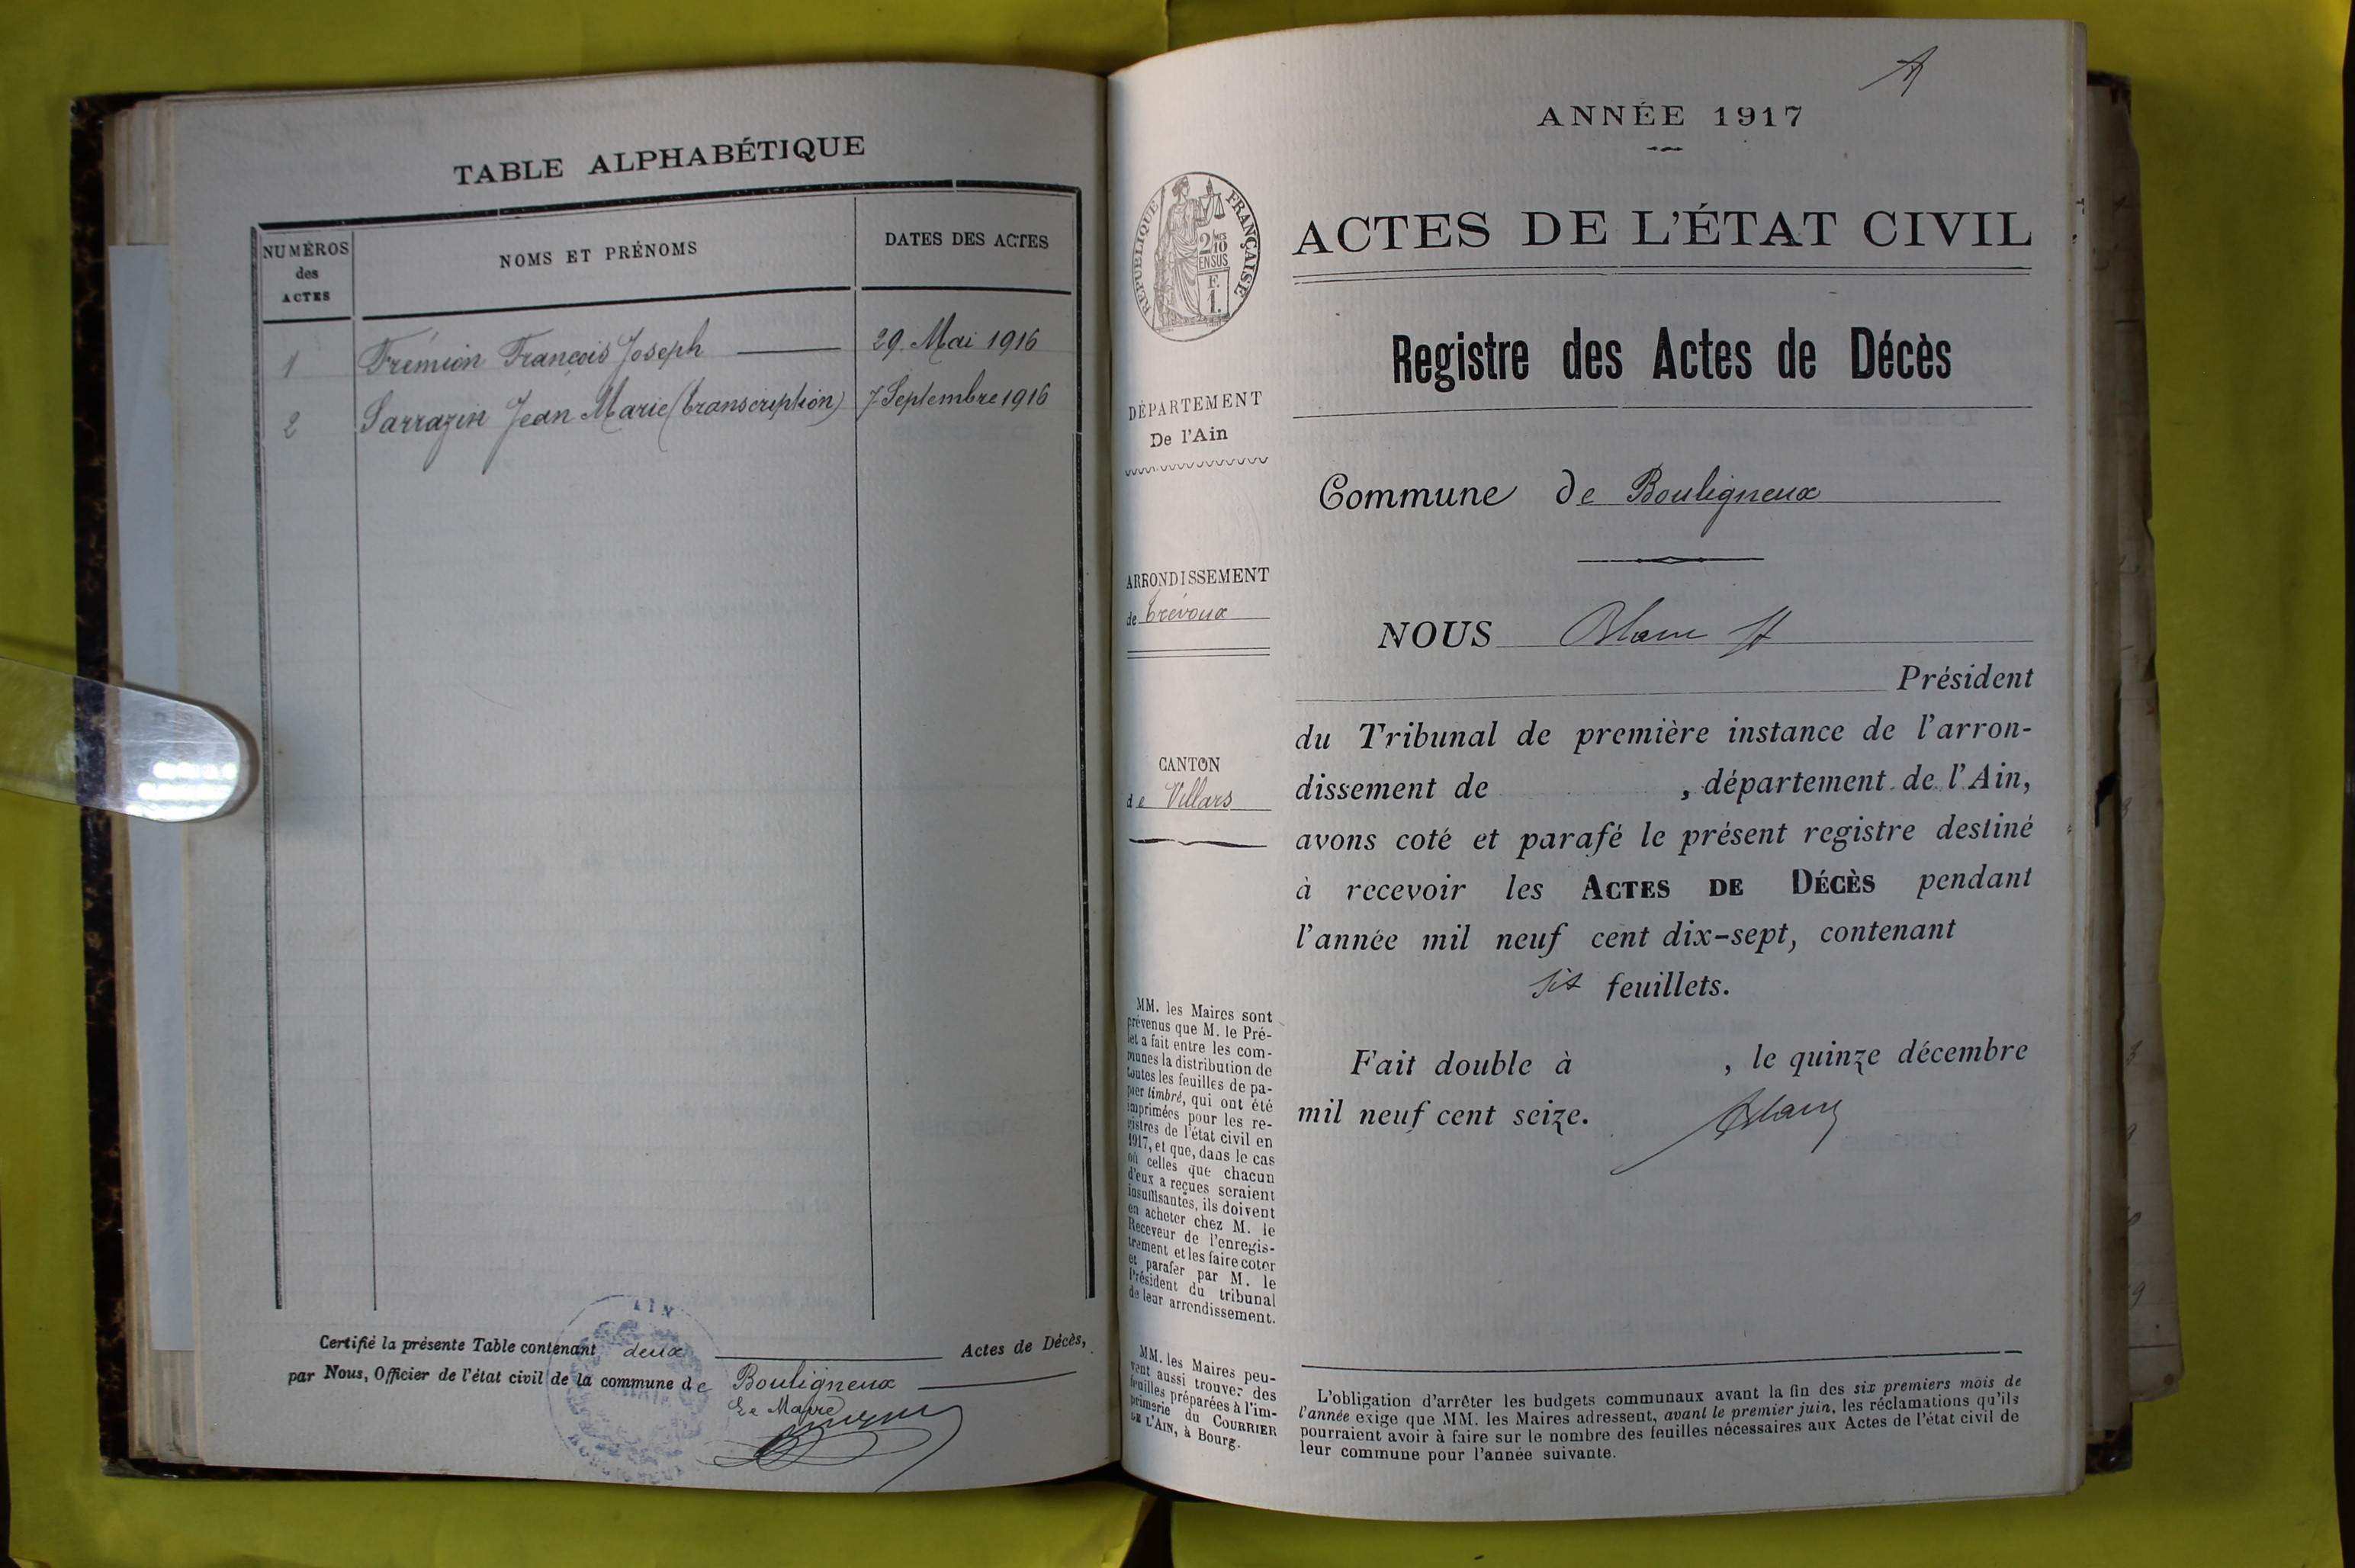 TABLE ALPHABÉTIQUE
NUMÉROS
des
ACTES
NOMS ET PRÉNOMS
DATES DES ACTES
1 Frémion François Joseph 29 Mai 1916
2 Sarrazin Jean Marie (transcription) 7 Septembre 1916
Certifié la présente Table contenant deux Actes de Décès,
par Nous, Officier de l'état civil de la commune de Bouligneux
Le Maire
AIN
ANNÉE 1917
RÉPUBLIQUE FRANÇAISE
2/10
EN SUS
F.
1.
ACTES DE L'ÉTAT CIVIL
Registre des Actes de Décès
DÉPARTEMENT
De l'Ain
Commune de Bouligneux
ARRONDISSEMENT
de Trévoux
NOUS
Président
du Tribunal de première instance de l'arron-
dissement de , département de l'Ain,
avons coté et parafé le présent registre destiné
à recevoir les ACTES DE DÉCÈS pendant
l'année mil neuf cent dix-sept, contenant
feuillets.
Fait double à , le quinze décembre
mil neuf cent seize.
CANTON
de Villars
MM. les Maires sont
prévenus que M. le Pré-
fet a fait entre les com-
munes la distribution de
toutes les feuilles de pa-
pier timbré, qui ont été
imprimées pour les re-
gistres de l'état civil en
1917, et que, dans le cas
où celles que chacun
d'eux a reçues seraient
insuffisantes, ils doivent
en acheter chez M. le
Receveur de l'enregis-
trement et les faire coter
et parafer par M. le
Président du tribunal
de leur arrondissement.
MM. les Maires peu-
vent aussi trouver des
feuilles préparées à l'im-
primerie du COURRIER
DE L'AIN, à Bourg.
L'obligation d'arrêter les budgets communaux avant la fin des six premiers mois de
l'année exige que MM. les Maires adressent, avant le premier juin, les réclamations qu'ils
pourraient avoir à faire sur le nombre des feuilles nécessaires aux Actes de l'état civil de
leur commune pour l'année suivante.